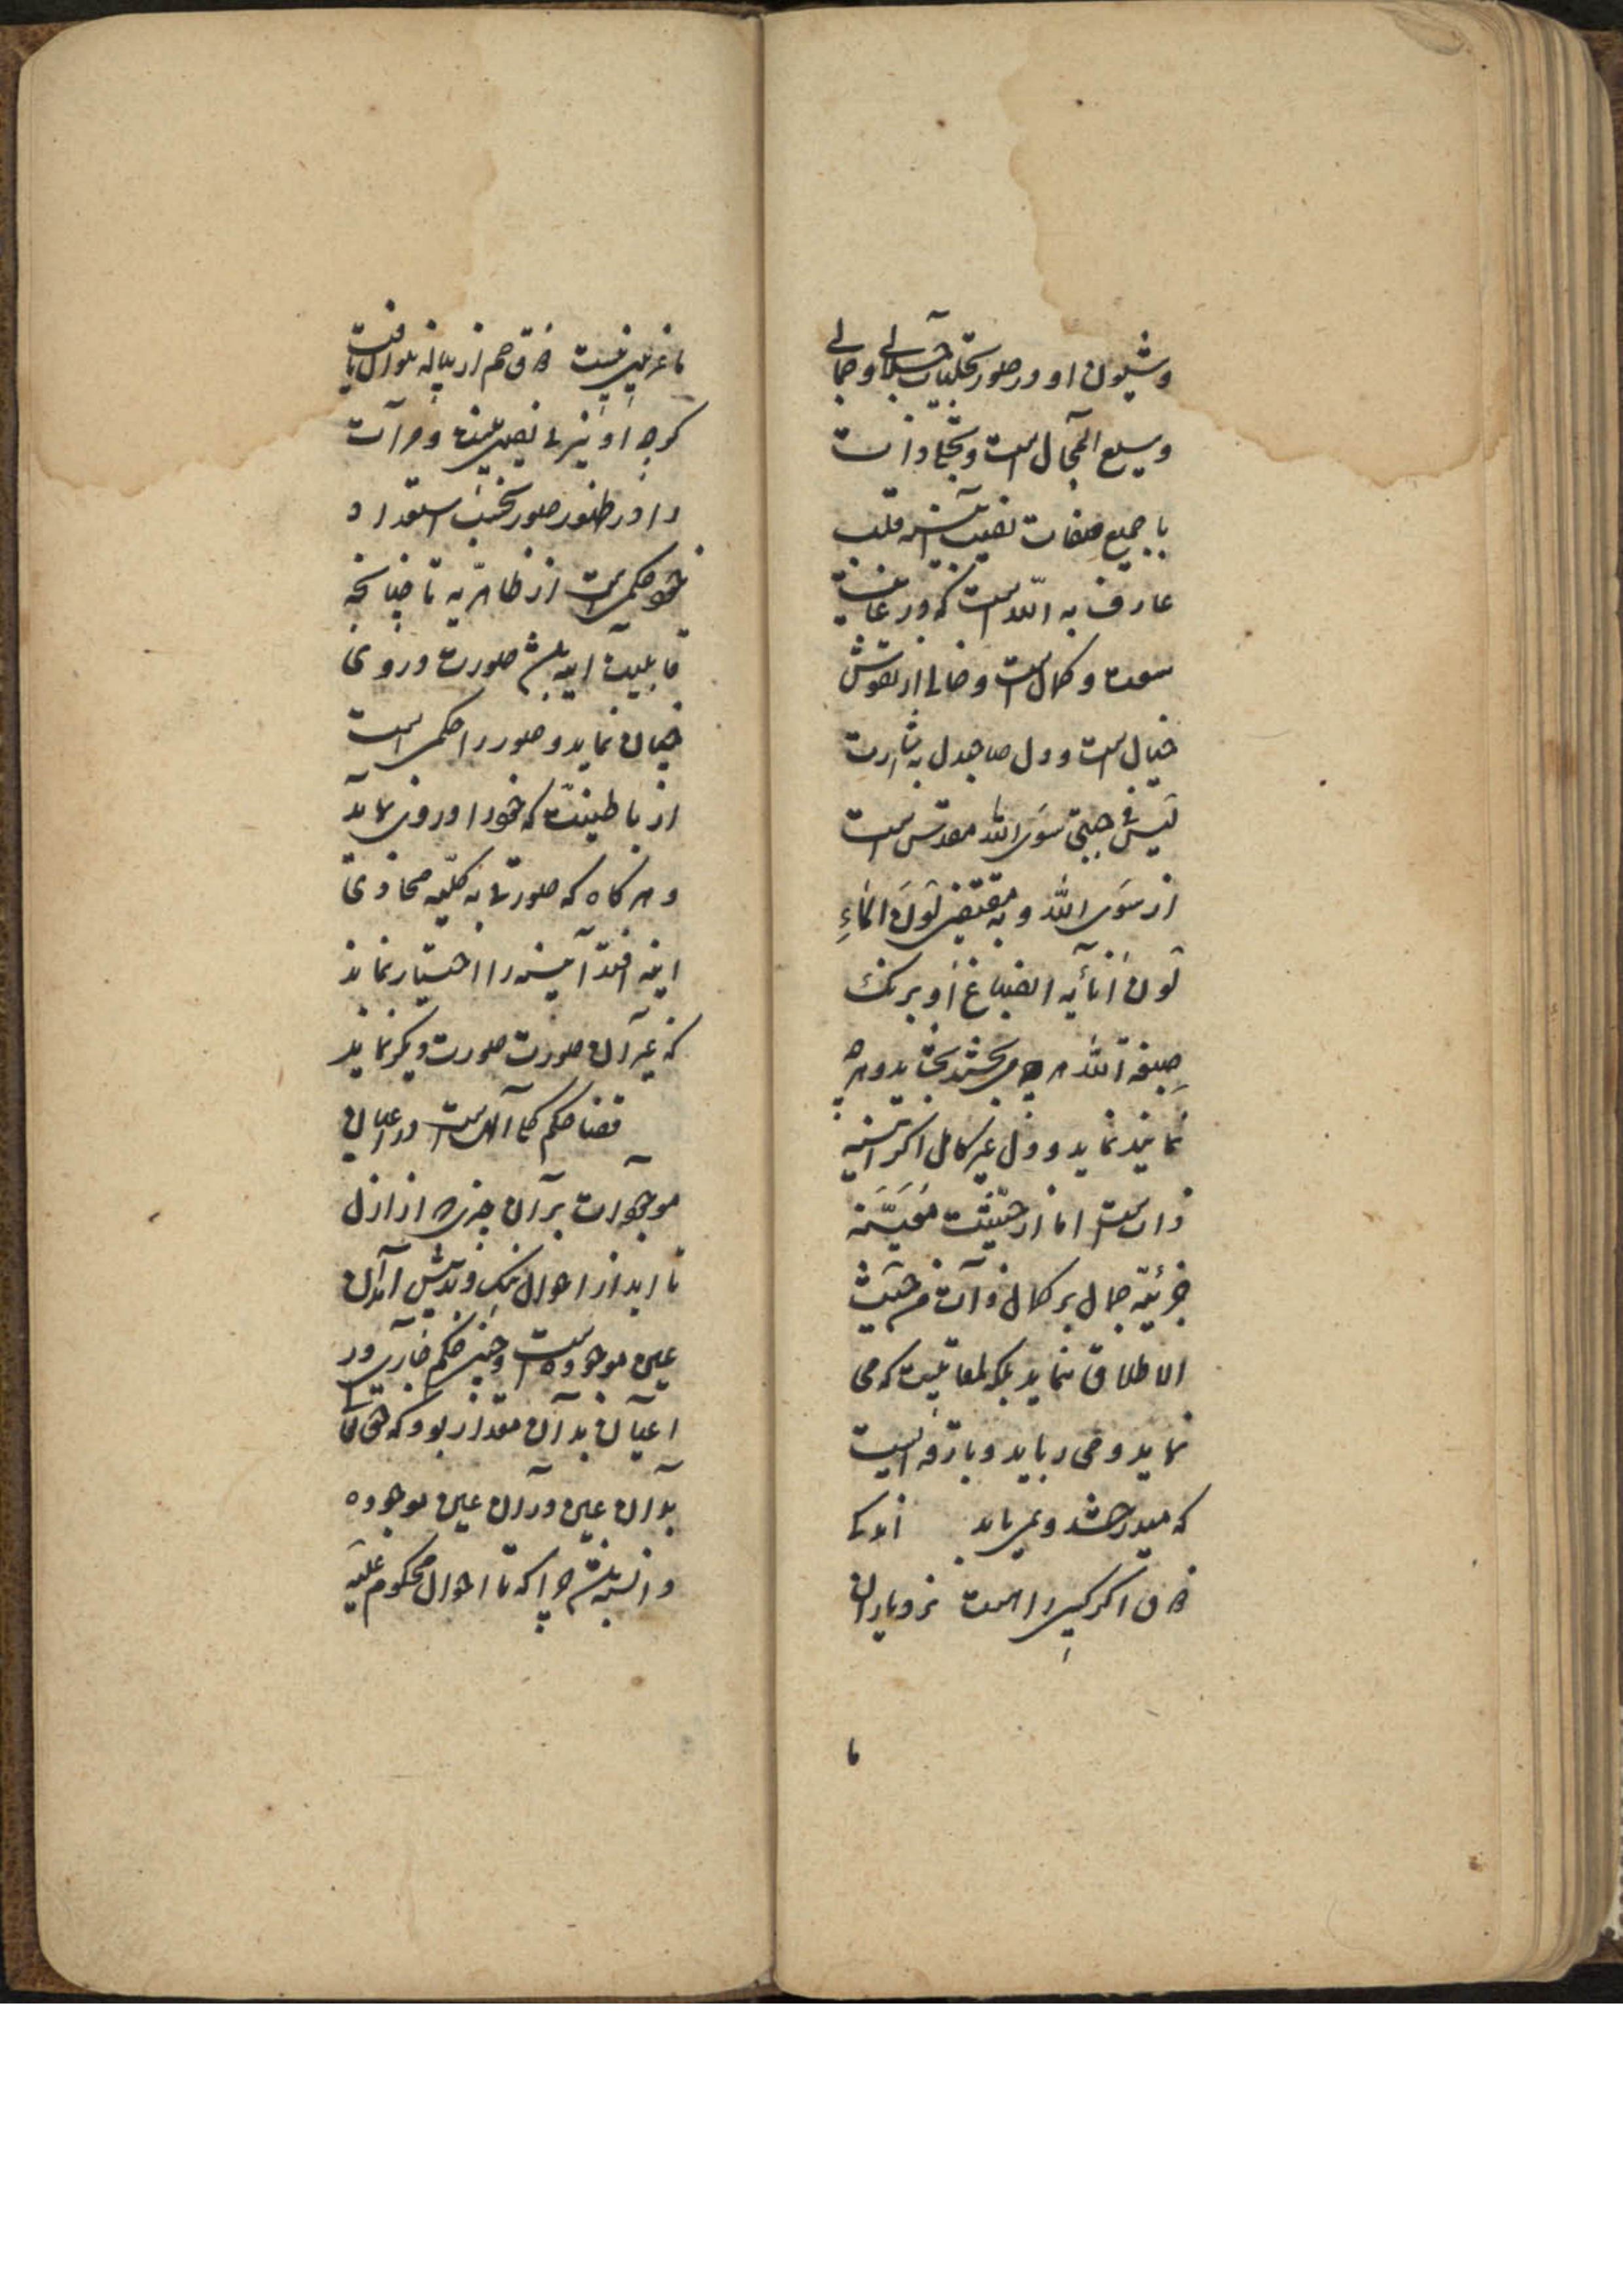 وشیون او در صور تجلیات جلالی و جمالی
وسیع المجال است و تجلی ذات
با جمیع صفات نصیب آینه قلب
عارف به الله است که در غایت
سعت و کمال است و خالی از نقوش
خیال است و دل صاحبدل بشارت
لیس فی جبتی سوی الله مقدس است
از سوی الله و به مقتضی لون الماء
لون انائه انصباغ او برنک
صبغة الله هرچه می بخشند بخشاید و هرچه
نمایند نماید و دل غیر کامل اگر آینه
ذات است اما از حیثیت
جزئیه جمال بر کمال ذات من حیث
الاطلاق ننماید بلکه که می
نماید و می رباید و بارقه ایست
که میدرخشد و
ذوق اگر کسی را هست نزد یاران
ما
ما غریبی نیست ذوق هم از پیاله توان یافت
کرچه او نیز بی نصیبی نیست و مرآت
را در ظهور صور بحسب استعداد
خود حکمی است از ظاهریه تا چنانچه
قابلیت آینه باشد صورت در وی
چنان نماید و صور را حکمی است
از باطنیت که خود را در وی نماید
و هرگاه که صورتی به کلیه محاذی
اینه افتد آینه را اختیار نماند
که غیر آن صورت صورت دیگر نماید
قضا حکم کلی الهی است در اعیان
موجودات بر آن چیزی که از ازل
تا ابد از احوال نیک و بدش آمدن
عین موجوده است و چنین حکم جاری در
اعیان بدان مقدار بود که حق تعالی
بدان عین و در آن عین موجوده
دانسته باشد چرا که تا احوال محکوم علیه